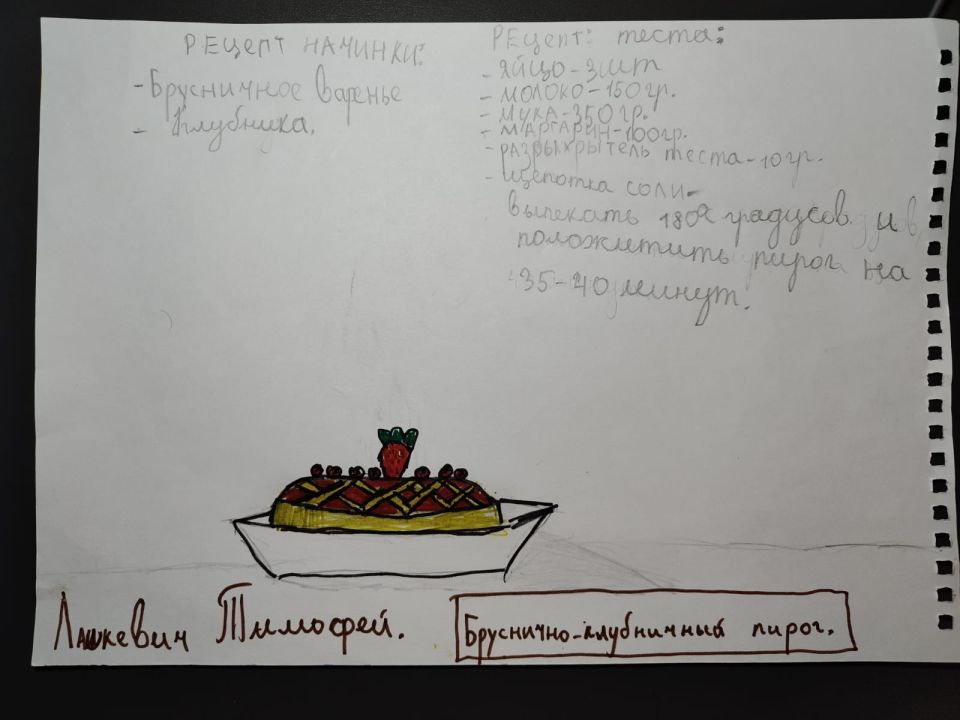 Рецепт начинки:
- Брусничное варенье
- Клубника.
Рецепт: теста:
- яйцо - 3шт
- молоко - 150гр.
- мука - 350гр.
- маргарин - 100гр.
- разрыхрытель теста - 10гр.
- щепотка соли -
выпекать 180% градусов и
положитить пирог на
35-40 минут.
Лашкевич Тимофей.
Бруснично-клубничный пирог.